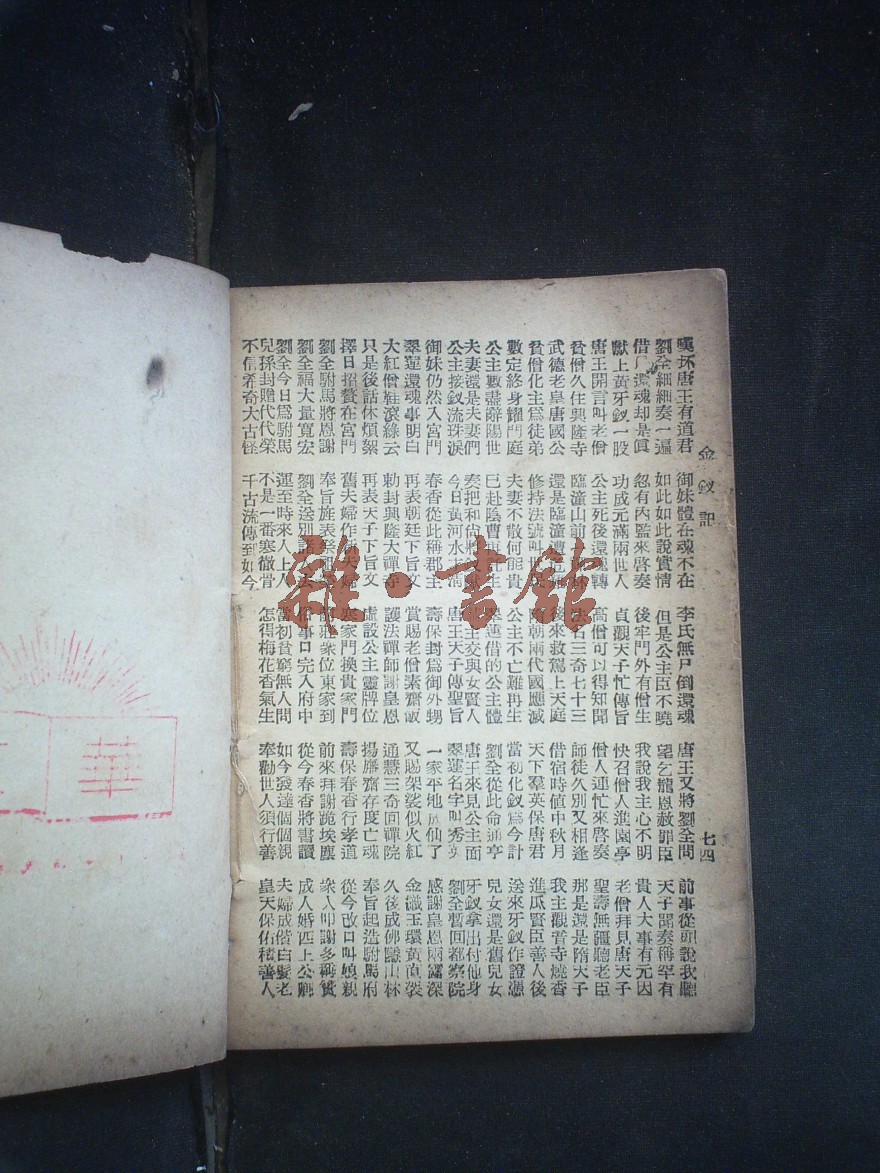 金釵記
七四
嘆坏唐王有道君 御妹體在魂不在 李氏無尸倒還魂 唐王又將劉全問 前事從頭說我聽
劉全細細奏一遍 如此如此說實情 但是公主臣不曉 望乞寵恩赦罪臣 天子聞奏稱罕有
借尸還魂却是眞 忽有內監來啓奏 後牢門外有僧生 我說我主心不明 貴人大事有元因
獻上黃牙釵一股 功成元滿兩世人 貞觀天子忙傳旨 快召僧人進園亭 老僧拜見唐天子
唐王開言叫老僧 公主死後還魂轉 高僧可以得知聞 僧人連忙來啓奏 聖壽無疆聽老臣
貧僧久住興隆寺 臨潼山前 法名三奇七十三 師徒久別又相逢 那是還是隋天子
武德老皇唐國公 還是臨潼遭 後來救駕上天庭 借宿時値中秋月 我主觀音寺燒香
貧僧化主爲徒弟 修持法號叫世民 隋朝兩代國應滅 天下羣英保唐君 進瓜賢臣善人後
數定終身耀門庭 夫妻不散何能貴 公主不亡難再生 當初化釵爲今計 送來牙釵作證憑
公主數盡辭陽世 已赴陰曹 主 翠蓮借的公主體 劉全從此命通亨 兒女還是舊兒女
夫妻還是夫妻們 奏把和尙 公主交與女賢人 唐王來見公主面 牙釵拿出付他身
公主接釵流珠淚 今日黃河水 清 唐王天子傳聖旨 翠蓮名字叫秀英 劉全暫回都察院
御妹仍然入宮門 春香從此稱郡主 壽保封爲御外甥 一家平地成仙了 感謝皇恩雨露深
翠蓮還魂事明白 再表朝廷下旨文 賞賜老僧素齋飯 又賜架裟似火紅 金織玉環黃直裰
大紅僧鞋滾綠云 勅封興隆大禪寺 護法禪師謝皇恩 通慧三奇回禪院 久後成佛隱山林
只是後話休煩絮 再表天子下旨文 虛設公主靈牌位 揚旛齋存度亡魂 奉旨起造駙馬府
擇日招贅在宮門 舊夫婦作新夫婦 寒家門換貴家門 壽保春香行孝道 從今改口叫娘親
劉全駙馬將恩謝 奉旨旌表祭祖 前莊衆位東家到 前來拜謝跪埃塵 衆人叩謝多稱贊
劉全福大量寬宏 劉全送別諸 去 俗事口完入府中 從今春香將書讀 成人婚匹上公卿
劉全今日爲駙馬 運至時來人上人 當初貧窮無人問 如今發達個個親 夫婦成偕白髮老
兒孫封贈代代榮 不是一番寒徹骨 怎得梅花香氣生 奉勸世人須行善 皇天保佑積善人
不信希奇大古怪 千古流傳到如今
雜·書館